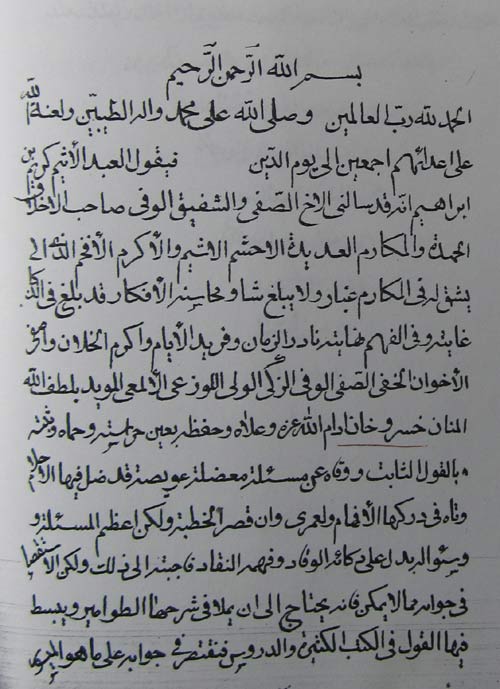 بسم الله الرحمن الرحيم
الحمد لله رب العالمين وصلى الله على محمد واله الطيبين ولعنة الله
على اعدائهم اجمعين الى يوم الدين فيقول العبد الأثيم كريم بن
ابراهيم انه قد سالنى الاخ الصفى والشفيق الوفى صاحب الاخلاق
الحميدة والمكارم العديدة الاحشم الاشيم والأكرم الأفخم الذى لا
يشق له فى المكارم غبار ولا يبلغ شاو محاسنه الأفكار قد بلغ فى الذكا
غايته وفى الفهم نهايته نادر الزمان وفريد الأيام واكرم الخلان واعز
الأخوان الحفى الصفى الوفى الزكى الولى اللوزعى الألمعى المويد بلطف الله
المنان خسرو خان ادام الله عزه وعلاه وحفظه بعين حراسته وحماه وثبته
بالقول الثابت ووقاه عن مسئلة معضلة عويصة قد ضل فيها الأحلام
وتاه فى دركها الأفهام ولعمرى وان قصر الخطبة ولكن اعظم المسئلة و
وسئواله يدل على ذكائه الوقاد وفهمه النقاد فاجبته الى ذلك ولكن الاستقصا
فى جوابه مما لا يمكن فانه يحتاج الى ان يملا فى شرحها الطوامير ويبسط
فيها القول فى الكتب الكثيرة والدروس فنقتصر فى جوابه على ما هو